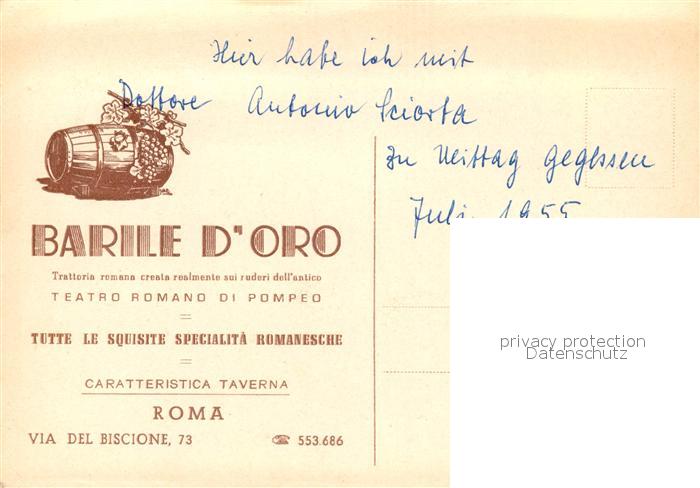 Hier habe ich mit
Dottore Antonio Sciorta
zu Mittag gegessen
Juli 1955
BARILE D'ORO
Trattoria romana creata realmente sui ruderi dell'antico
TEATRO ROMANO DI POMPEO
TUTTE LE SQUISITE SPECIALITÀ ROMANESCHE
CARATTERISTICA TAVERNA
ROMA
VIA DEL BISCIONE, 73 ☎ 553.686
privacy protection
Datenschutz